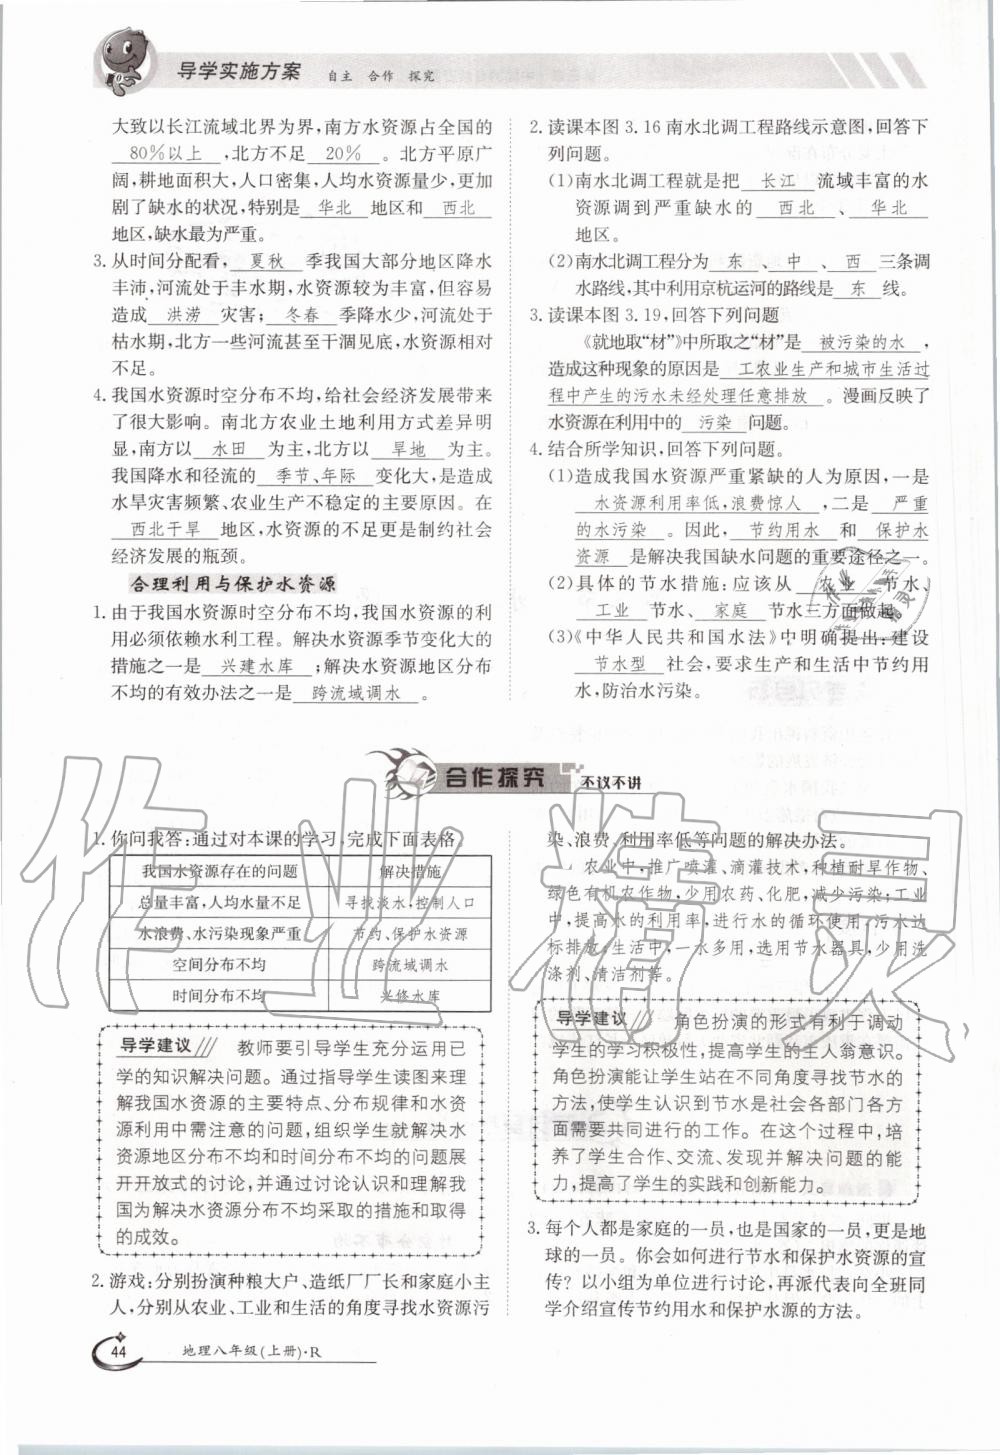 导学实施方案 自主 合作 探究
大致以长江流域北界为界,南方水资源占全国的
80%以上,北方不足 20% 。北方平原广
阔,耕地面积大,人口密集,人均水资源量少,更加
剧了缺水的状况,特别是 华北 地区和 西北
地区,缺水最为严重。
3. 从时间分配看, 夏秋 季我国大部分地区降水
丰沛,河流处于丰水期,水资源较为丰富,但容易
造成 洪涝 灾害; 冬春 季降水少,河流处于
枯水期,北方一些河流甚至干涸见底,水资源相对
不足。
4. 我国水资源时空分布不均,给社会经济发展带来
了很大影响。南北方农业土地利用方式差异明
显,南方以 水田 为主,北方以 旱地 为主。
我国降水和径流的 季节、年际 变化大,是造成
水旱灾害频繁、农业生产不稳定的主要原因。在
西北干旱 地区,水资源的不足更是制约社会
经济发展的瓶颈。
合理利用与保护水资源
1. 由于我国水资源时空分布不均,我国水资源的利
用必须依赖水利工程。解决水资源季节变化大的
措施之一是 兴建水库 ;解决水资源地区分布
不均的有效办法之一是 跨流域调水 。
2. 读课本图 3.16 南水北调工程路线示意图,回答下
列问题。
(1)南水北调工程就是把 长江 流域丰富的水
资源调到严重缺水的 西北 、 华北
地区。
(2)南水北调工程分为 东 、 中 、 西 三条调
水路线,其中利用京杭运河的路线是 东 线。
3. 读课本图 3.19,回答下列问题
《就地取“材”》中所取之“材”是 被污染的水 ,
造成这种现象的原因是 工农业生产和城市生活过
程中产生的污水未经处理任意排放 。漫画反映了
水资源在利用中的 污染 问题。
4. 结合所学知识,回答下列问题。
(1)造成我国水资源严重紧缺的人为原因,一是
水资源利用率低,浪费惊人 ,二是 严重
的水污染 。因此, 节约用水 和 保护水
资源 是解决我国缺水问题的重要途径之一。
(2)具体的节水措施:应该从 农业 节水、
工业 节水、 家庭 节水三方面做起。
(3)《中华人民共和国水法》中明确提出:建设
节水型 社会,要求生产和生活中节约用
水,防治水污染。
合作探究 不议不讲
1. 你问我答:通过对本课的学习,完成下面表格。
我国水资源存在的问题 解决措施
总量丰富,人均水量不足 寻找淡水,控制人口
水浪费、水污染现象严重 节约、保护水资源
空间分布不均 跨流域调水
时间分布不均 兴修水库
导学建议 教师要引导学生充分运用已
学的知识解决问题。通过指导学生读图来理
解我国水资源的主要特点、分布规律和水资
源利用中需注意的问题,组织学生就解决水
资源地区分布不均和时间分布不均的问题展
开开放式的讨论,并通过讨论认识和理解我
国为解决水资源分布不均采取的措施和取得
的成效。
2. 游戏:分别扮演种粮大户、造纸厂厂长和家庭小主
人,分别从农业、工业和生活的角度寻找水资源污
染、浪费、利用率低等问题的解决办法。
农业中,推广喷灌、滴灌技术,种植耐旱作物、
绿色有机农作物,少用农药、化肥,减少污染;工业
中,提高水的利用率,进行水的循环使用,污水达
标排放;生活中,一水多用,选用节水器具,少用洗
涤剂、清洁剂等。
导学建议 角色扮演的形式有利于调动
学生的学习积极性,提高学生的主人翁意识。
角色扮演能让学生站在不同角度寻找节水的
方法,使学生认识到节水是社会各部门各方
面需要共同进行的工作。在这个过程中,培
养了学生合作、交流、发现并解决问题的能
力,提高了学生的实践和创新能力。
3. 每个人都是家庭的一员,也是国家的一员,更是地
球的一员。你会如何进行节水和保护水资源的宣
传?以小组为单位进行讨论,再派代表向全班同
学介绍宣传节约用水和保护水源的方法。
44 地理八年级(上册)·R
作业精灵